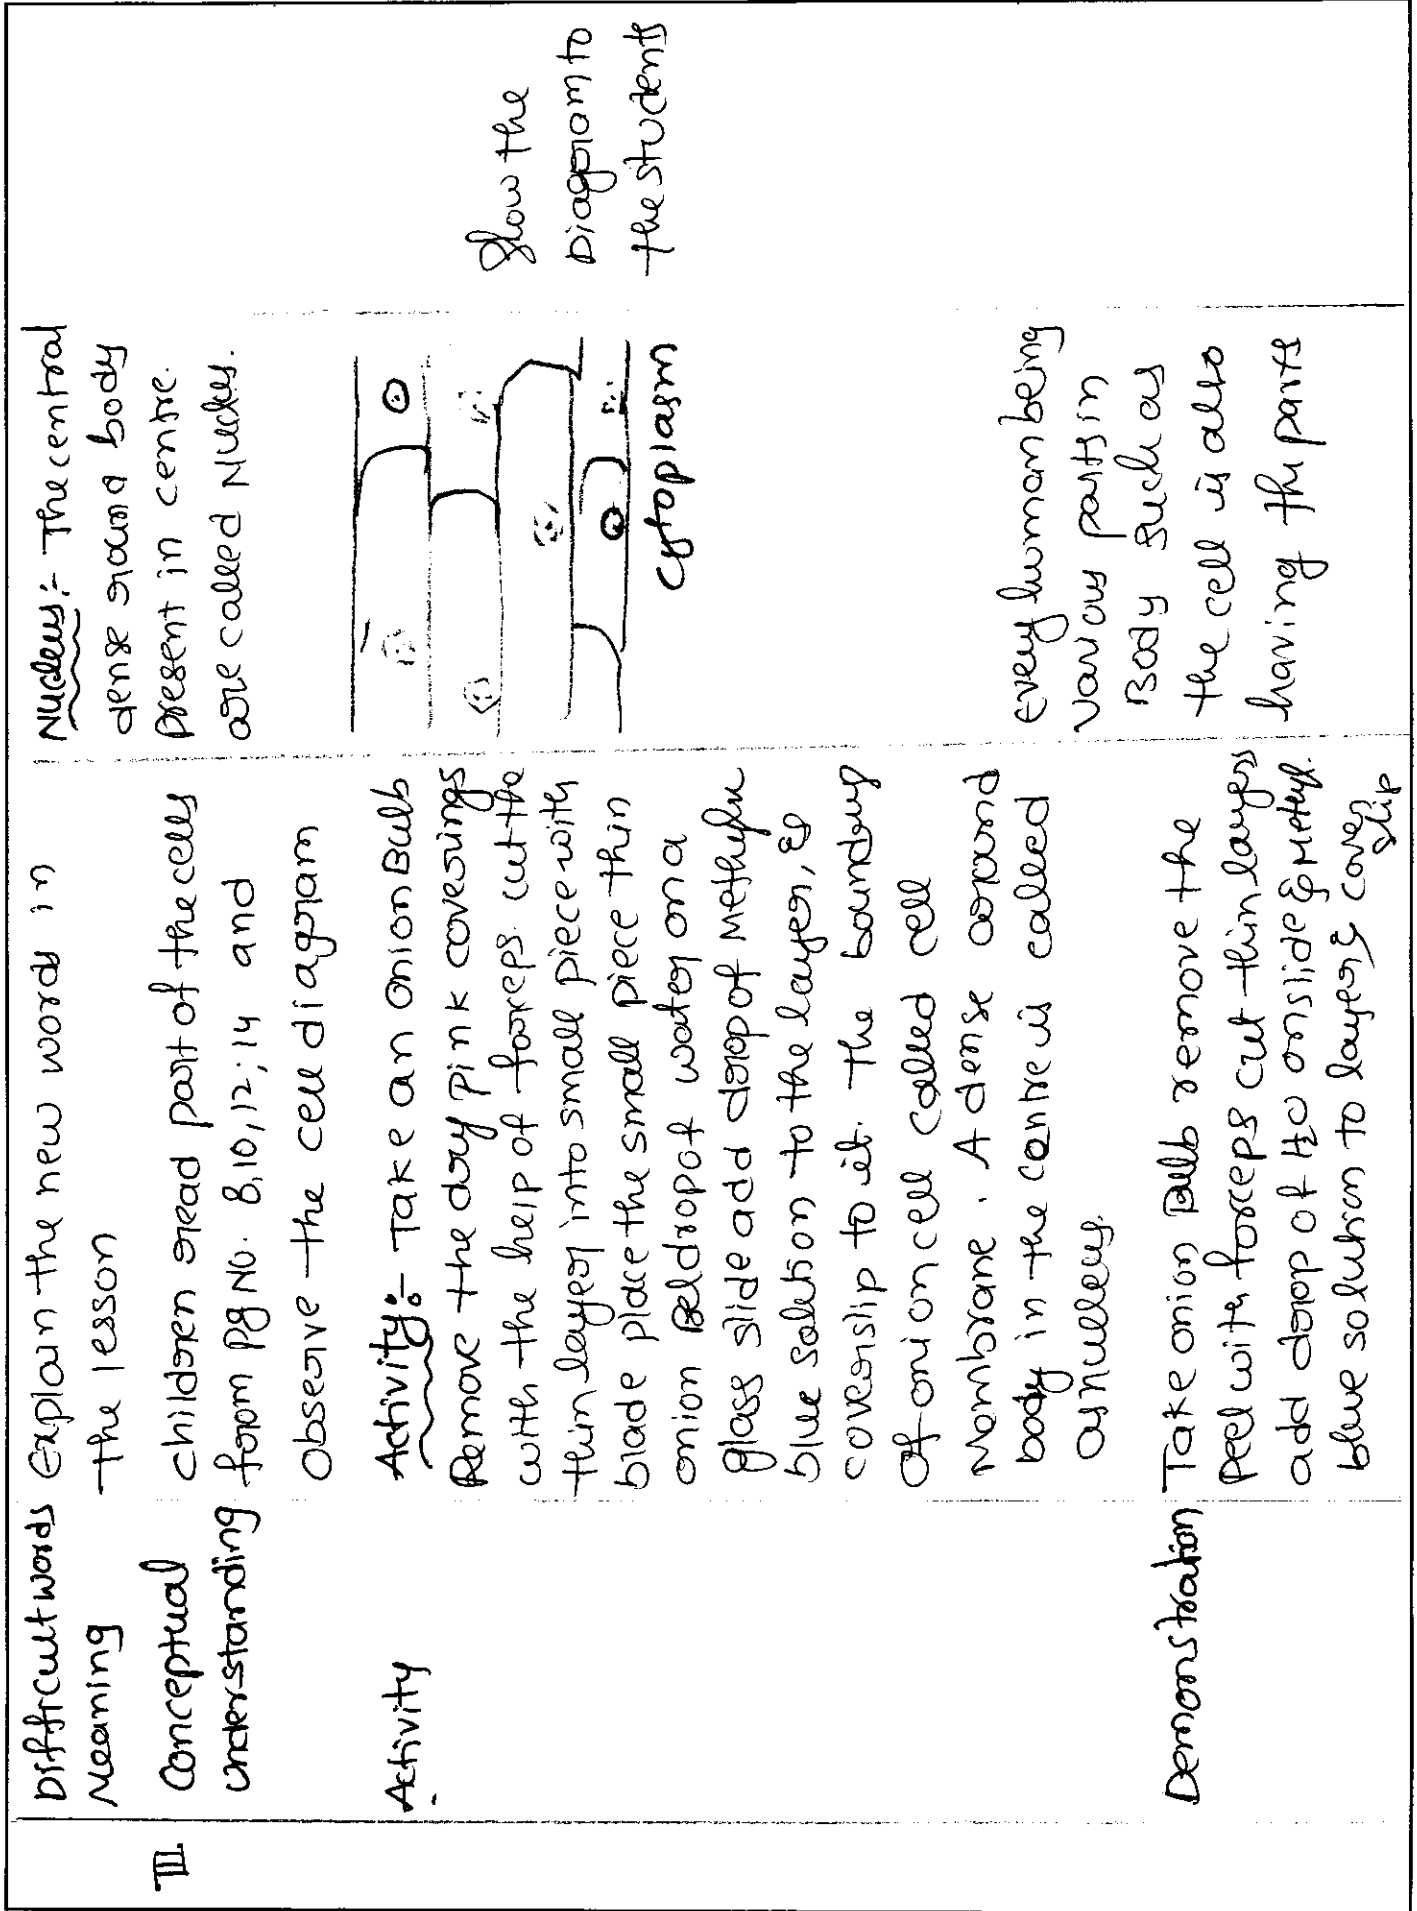 Difficult words
Meaning
Explain the new words in
the lesson
Nucleus:- The central
dense round body
present in centre.
are called Nucleus.
III
Conceptual
understanding
children read part of the cells
from Pg No. 8,10,12,14 and
observe the cell diagram
Activity
Activity:- Take an onion Bulb
Remove the dry pink coverings
with the help of forceps. cut the
thin layer into small piece with
blade place the small piece thin
onion Peldropof water on a
glass slide add drop of Methylen
blue solution to the layer, &
coverslip to it. The boundary
of onion cell called cell
Membrane. A dense around
body in the centre is called
as nulleus.
cytoplasm
Show the
Diagram to
the students
Demonstration
Take onion Bulb remove the
peel with forceps cut thin layers
add drop of H2O on slide & Methyl.
blue solution to layer & cover
slip
every human being
various parts in
Body such as
the cell is also
having the parts